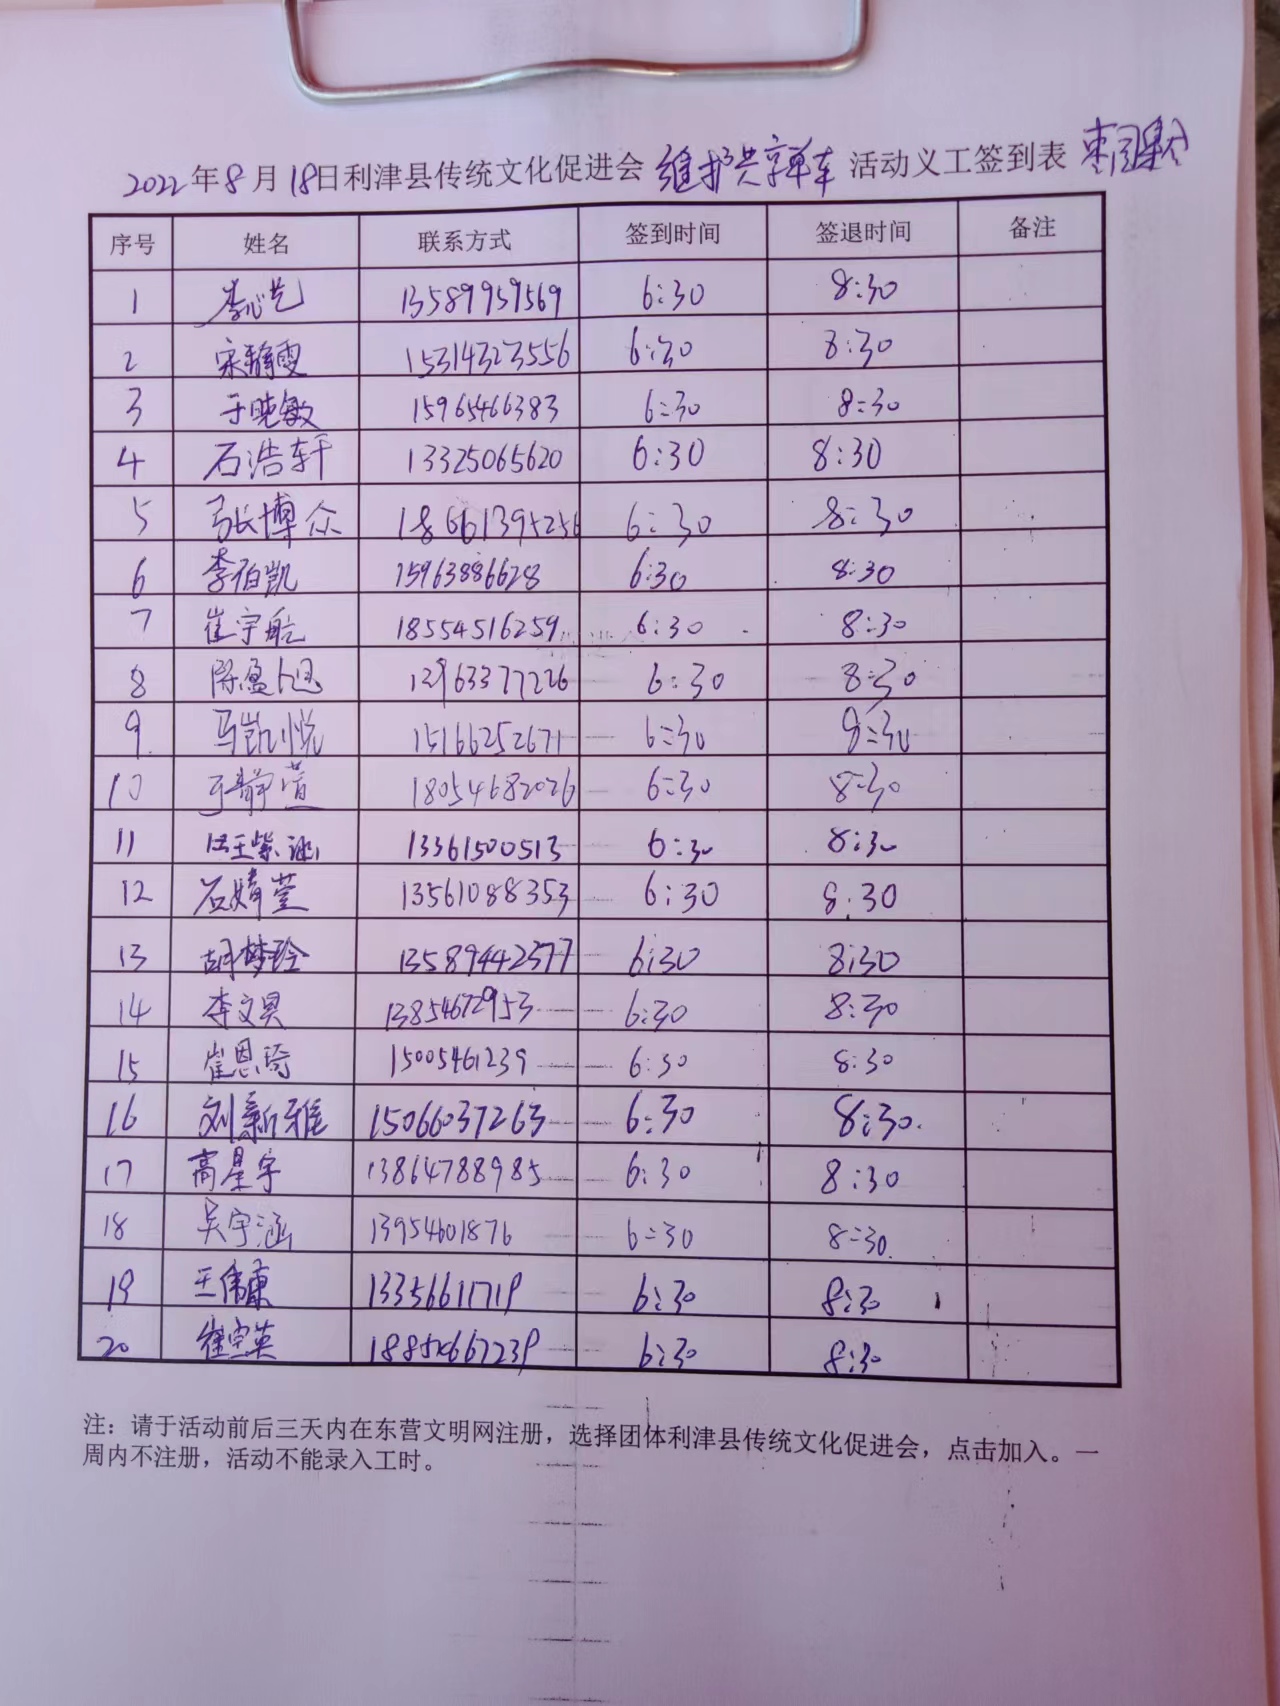 2022年8月18日利津县传统文化促进会 维护共享单车 活动义工签到表 枣园集合
序号 姓名 联系方式 签到时间 签退时间 备注
1 李心艺 13589959569 6:30 8:30
2 宋静雯 15314323556 6:30 8:30
3 于晓敏 15965466383 6:30 8:30
4 石浩轩 13325065620 6:30 8:30
5 张博众 18661395256 6:30 8:30
6 李伯凯 15963886628 6:30 8:30
7 崔宇航 18554516259 6:30 8:30
8 13963377226 6:30 8:30
9 马凯悦 15166252671 6:30 8:30
10 于静萱 18054682026 6:30 8:30
11 13361500513 6:30 8:30
12 石婧萱 13561088353 6:30 8:30
13 胡梦玲 13589442377 6:30 8:30
14 李文昊 13854672953 6:30 8:30
15 崔恩琦 15005461239 6:30 8:30
16 刘新雅 15066037263 6:30 8:30
17 高星宇 13864788985 6:30 8:30
18 吴宇涵 13954601876 6:30 8:30
19 王伟康 13356611719 6:30 8:30
20 6:30 8:30
注：请于活动前后三天内在东营文明网注册，选择团体利津县传统文化促进会，点击加入。一
周内不注册，活动不能录入工时。